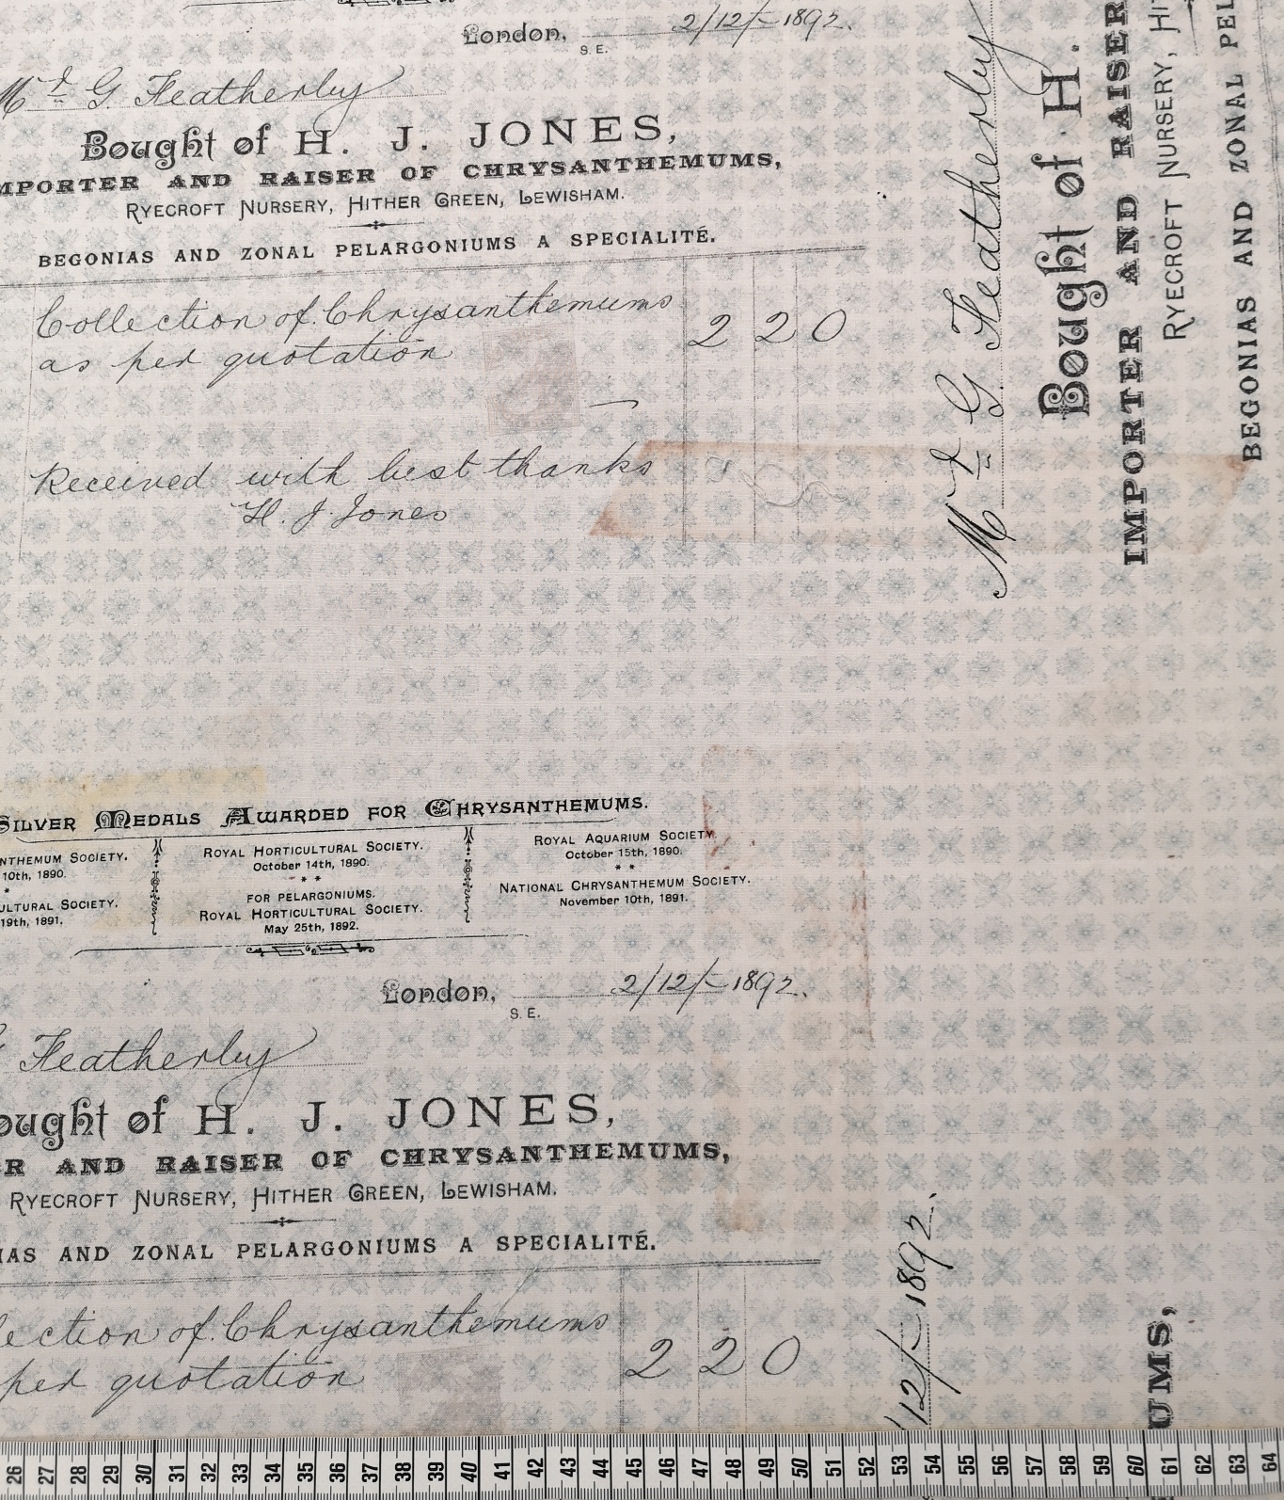 London, 2/12/-1892.
S.E.
Mr G Featherley
Bought of H. J. JONES,
IMPORTER AND RAISER OF CHRYSANTHEMUMS,
RYECROFT NURSERY, HITHER GREEN, LEWISHAM.
BEGONIAS AND ZONAL PELARGONIUMS A SPECIALITÉ.
Collection of Chrysanthemums
as per quotation 2 2 0
Received with best thanks
H. J. Jones
SILVER MEDALS AWARDED FOR CHRYSANTHEMUMS.
NTHEMUM SOCIETY.
10th, 1890.
ULTURAL SOCIETY.
19th, 1891.
ROYAL HORTICULTURAL SOCIETY.
October 14th, 1890.
FOR PELARGONIUMS.
ROYAL HORTICULTURAL SOCIETY.
May 25th, 1892.
ROYAL AQUARIUM SOCIETY.
October 15th, 1890.
NATIONAL CHRYSANTHEMUM SOCIETY.
November 10th, 1891.
London, 2/12/-1892.
S.E.
Featherley
ought of H. J. JONES,
ER AND RAISER OF CHRYSANTHEMUMS,
RYECROFT NURSERY, HITHER GREEN, LEWISHAM.
IAS AND ZONAL PELARGONIUMS A SPECIALITÉ.
lection of Chrysanthemums
per quotation 2 2 0
Mr G. Featherley
Bought of H.
IMPORTER AND RAISER
RYECROFT NURSERY, HIT
BEGONIAS AND ZONAL PEL
12/-1892.
UMS,
26 27 28 29 30 31 32 33 34 35 36 37 38 39 40 41 42 43 44 45 46 47 48 49 50 51 52 53 54 55 56 57 58 59 60 61 62 63 64